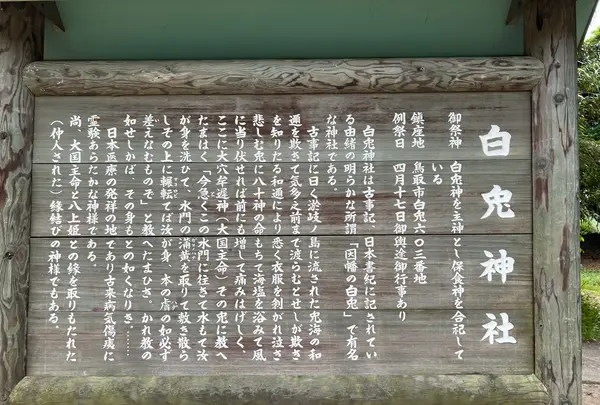 白兎神社
御祭神　白兎神を主神とし保食神を合記して
いる
鎮座地　鳥取市白兎六〇三番地
例祭日　四月十七日御輿途御行事あり
白兎神社は古事記、日本書紀に記されてい
る由緒の明らかな所謂「因幡の白兎」で有名
な神社である。
古事記に曰く淤岐ノ島に流された兎海の和
邇を欺きて気多之前まで渡らむとせしが欺き
を知りたる和邇により悉く衣服を剥がれ泣き
悲しむ兎に八十神の命もちて海塩を浴みて風
に当り伏せれば前にも増して痛みはげしく、
ここに大穴牟遅神（大国主命）その兎に教へ
たまはく「今急くこの水門に往きて水もて汝
が身を洗ひて、水門の蒲黄を取りて敷き散ら
しその上に輾転てば汝が身、本の膚の如必ず
差えなむものぞ」と教へたまひき、かれ教の
如せしかば、その身もとの如くなりき。……
日本医療の発祥の地であり古来病気傷痍に
霊験あらたかな神様である。
尚、大国主命と八上姫との縁を取りもたれた
（仲人された）縁結びの神様でもある。